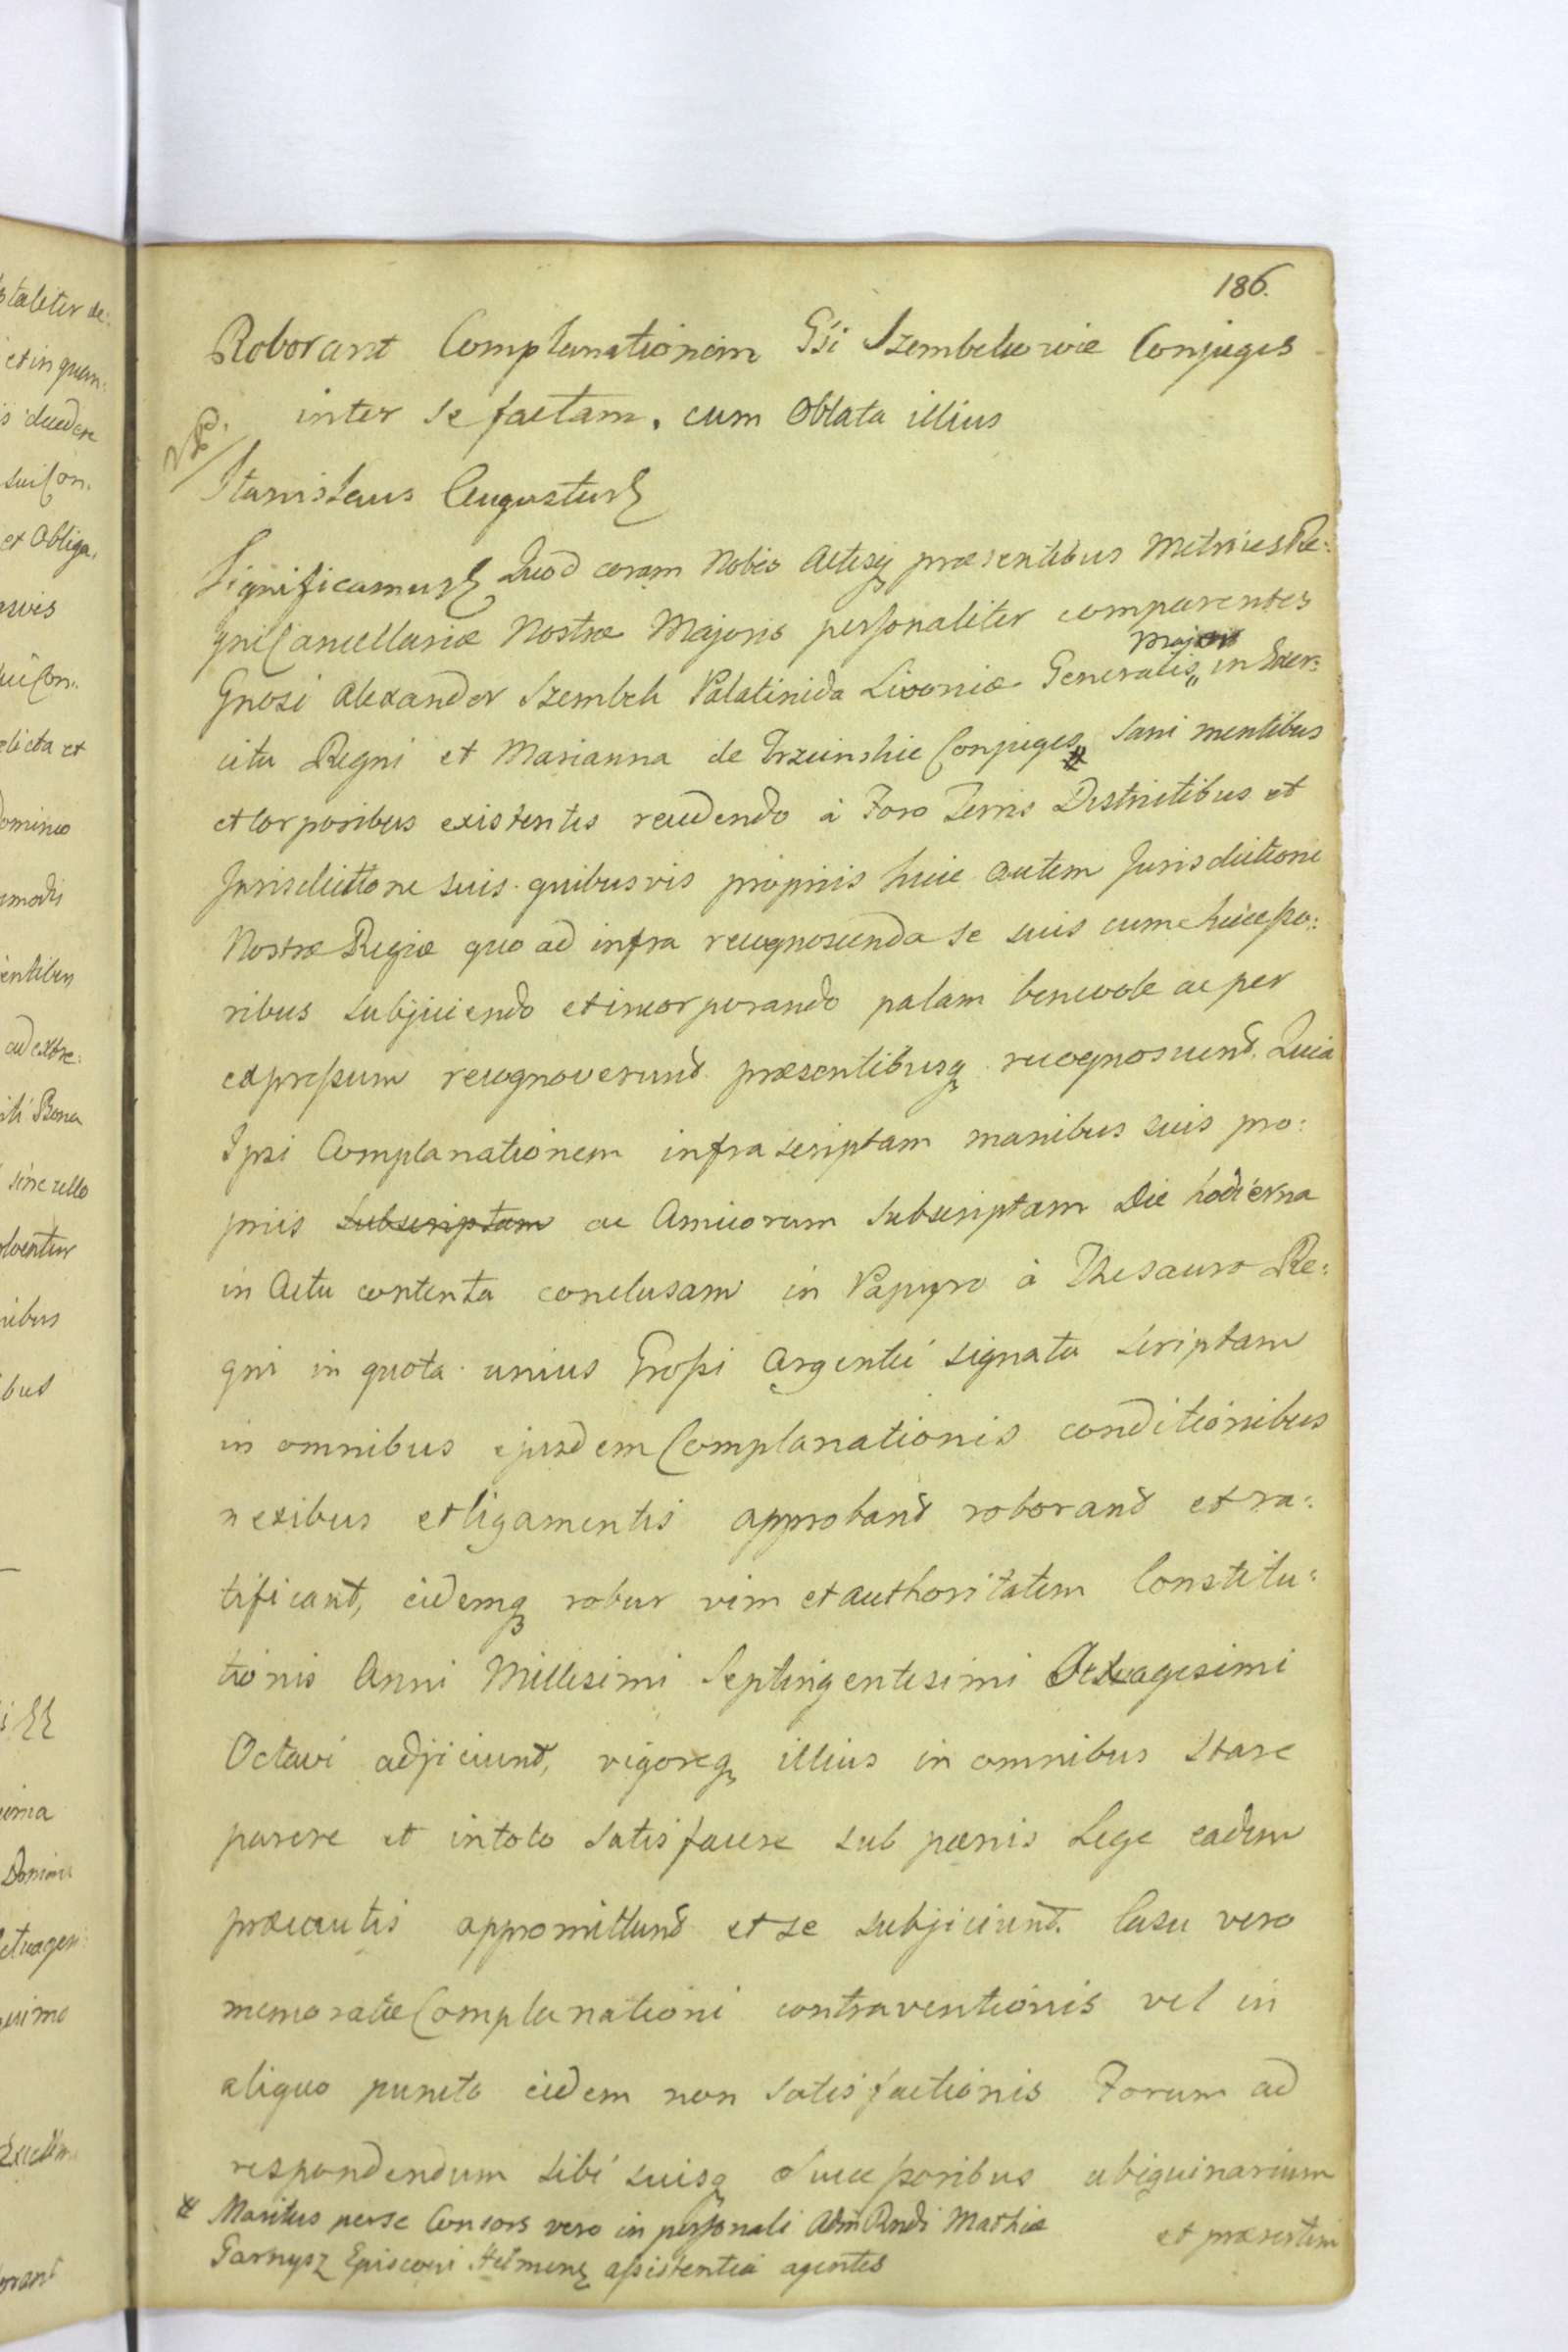 186.
Roborant Complanationem Gsi Szembekowie Conjuges
inter se factam, cum Oblata illius
Stanislaus Augustus
Significamus Quod coram Nobis Actisq præsentibus Metrices Re:
gni Cancellariæ Nostræ Majoris personaliter comparentes
Major
Gnosi Alexander Szembek Palatinida Livoniæ Generalis „ in Exer:
citu Regni et Marianna de Conjuges # Sani mentibus
et Corporibus existentes recedendo à Foro Terris Districtibus et
Jurisdictione suis quibusvis propriis huic autem Jurisdictioni
Nostræ Regiæ quo ad infra recognoscenda se suis cum Succeßo:
ribus subjiciendo et incorporando palam benevole ac per
expreßum recognoverunt præsentibusq recognoscunt. Quia
Ipsi Complanationem infrascriptam manibus suis pro:
priis subscriptam ac Amicorum Subscriptam Die hodierna
in Actu contenta conclusam in Papyro à Thesauro Re:
gni in quota unius Großi Argentei signata scriptam
in omnibus ejusdem Complanationis conditionibus
nexibus et ligamentis approbant roborant et ra:
tificant, eidemq robur vim et authoritatem Constitu:
tionis Anni Millesimi Septingentesimi Octuagesimi
Octavi adjiciunt, vigoreq illius in omnibus stare
parere et in toto satisfacere sub pœnis Lege eadem
præcautis appromittunt et se subjiciunt. Casu vero
memoratæ Complanationi contraventionis vel in
aliquo puncto eidem non satisfactionis Forum ad
respondendum sibi suisq Succeßoribus ubiquinarium
et præsertim
# Maritus per se Consors vero in personali Adm Rndi Mathiæ
Garnysz Episcopi aßistentia agentes